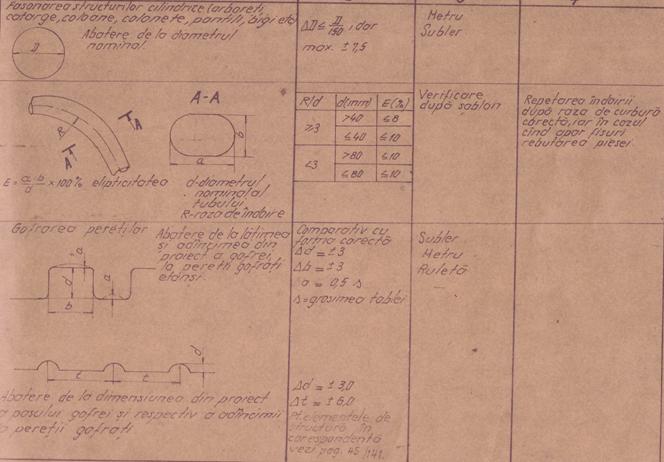 Fasonarea structurilor cilindrice (arboreți,
catarge, coloane, colonete, pontili, bigi etc)
Abatere de la diametrul
nominal.
D
ΔD ≤ D/150, dar
max. ±7,5
Metru
Subler
A-A
R
A
A
a
b
E = a-b/d × 100% elipticitatea
d-diametrul
nominal al
tubului
R-raza de îndoire
R/d d(mm) E(%)
≥3 >40 ≤8
≤40 ≤10
<3 >80 ≤10
≤80 ≤10
Verificare
după șablon
Repetarea îndoirii
după raza de curbură
corectă, iar în cazul
cînd apar fisuri
rebutarea piesei
Gofrarea pereților
Abatere de la lățimea
și adîncimea din
proiect a gofrei,
la pereții gofrați
etanși.
a
d
a
b
Comparativ cu
forma corectă
Δd = ±3
Δb = ±3
a = 0,5 s
s=grosimea tablei
Subler
Metru
Ruletă
d
t
t
Abatere de la dimensiunea din proiect
a pasului gofrei și respectiv a adîncimii
pereții gofrați
Δd = ±3,0
Δt = ±6,0
Pt. elementele de
structură în
corespondență
vezi pag. 45/141.